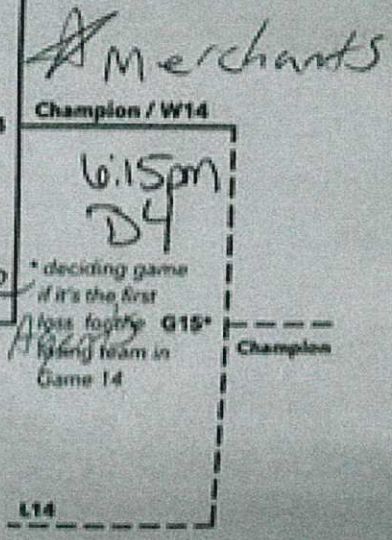 Merchants
Champion / W14
6:15pm
D4
* deciding game
if it's the first
loss for the G15*
losing team in Champion
Game 14
L14